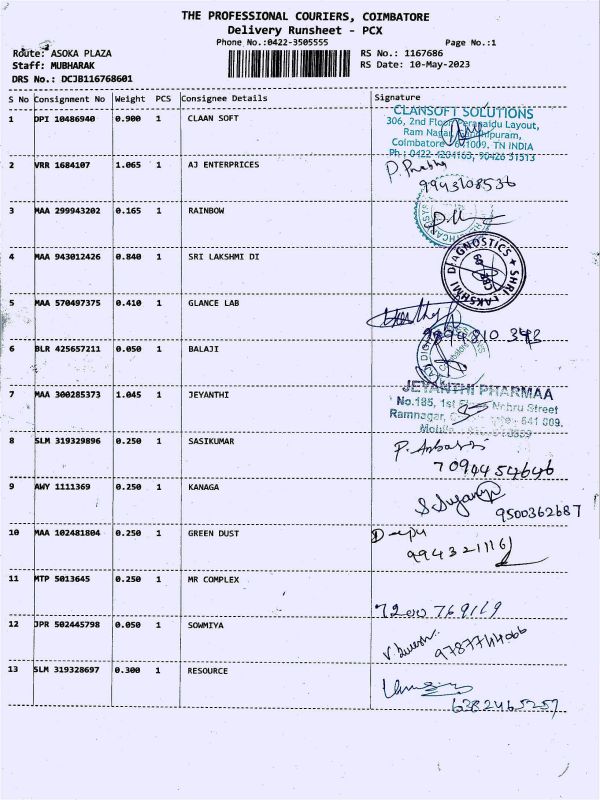 THE PROFESSIONAL COURIERS, COIMBATORE
Delivery Runsheet - PCX
Phone No.:0422-3505555 Page No.:1
Route: ASOKA PLAZA RS No.: 1167686
Staff: MUBHARAK RS Date: 10-May-2023
DRS No.: DCJB116768601
S No Consignment No Weight PCS Consignee Details Signature
1 DPI 10486940 0.900 1 CLAAN SOFT
CLANSOFT SOLUTIONS
306, 2nd Floor Layout,
Ram Nagar,
Coimbatore TN INDIA
2 VRR 1684107 1.065 1 AJ ENTERPRICES
P. Prabhu
9943108536
3 MAA 299943202 0.165 1 RAINBOW
4 MAA 943012426 0.840 1 SRI LAKSHMI DI
SHRI LAKSHMI DIAGNOSTICS
5 MAA 570497375 0.410 1 GLANCE LAB
6 BLR 425657211 0.050 1 BALAJI
7 MAA 300285373 1.045 1 JEYANTHI
JEYANTHI PHARMAA
No.185, 1st Nehru Street
Ramnagar, 641 009.
8 SLM 319329896 0.250 1 SASIKUMAR
7094454646
9 AWY 1111369 0.250 1 KANAGA
9500362687
10 MAA 102481804 0.250 1 GREEN DUST
Deepu
9943211161
11 MTP 5013645 0.250 1 MR COMPLEX
12 JPR 502445798 0.050 1 SOWMIYA
9787744066
13 SLM 319328697 0.300 1 RESOURCE
6382465257